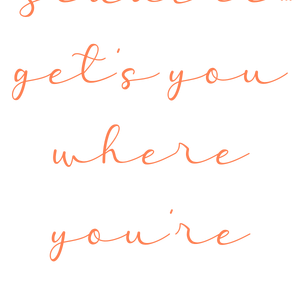 get's you
where
you're